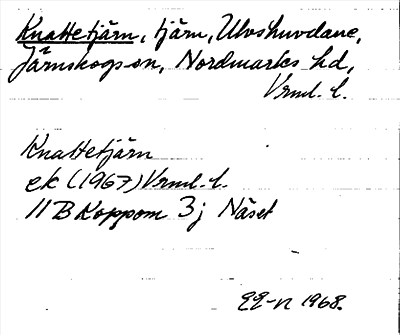 Knattetjärn, tjärn, Ulvshuvdane,
Järnskogs sn, Nordmarks hd,
Vrml. l.
Knattetjärn
ek (1967) Vrml. l.
11 B Koppom 3j Näset
1968.